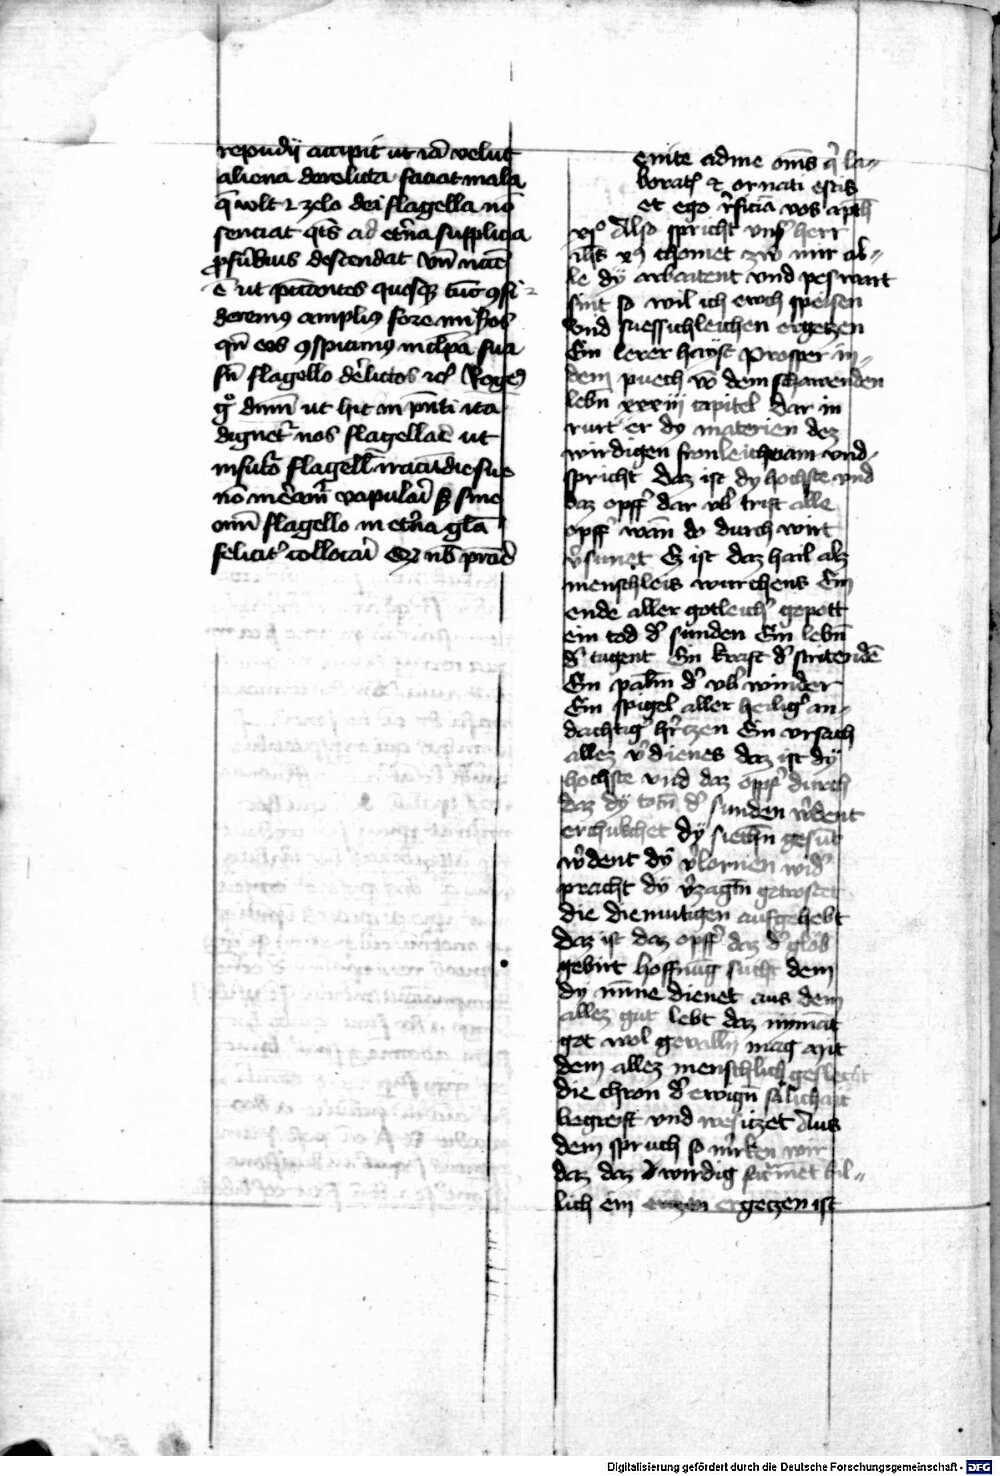 repudii accipit ut iā velut
aliena derelicta faciat mala
q̄ wolt ⁊ zelo dei flagella nō
senciat qͭs ad et̄na supplicia
descendat Vn̄
ut quosq tūc ꝯsi-
deremꝰ ampliꝰ fore mīs̄os
qn̄ eos ꝯspicimꝰ in cl̄pa sua
sn̄ flagello de̓lictos
gͦ dnm̄ ut hic in pn̄ti ita
dignet᷑ nos flagellare ut
in futō flagell̄
nō sine
om̄i flagello in et̄na gl̄a
felicit᷑ collocari
enite ad me om̄s q̇ la-
boratꝭ ⁊ ornati estis
et ego r̓ficiā vos
Also spricht vnſ᷑ herr
ih̄s xp̄s chomet zw mir al-
le dy arbaitent vnd peswart
sint so wil ich ewch speisen
vnd suessichleichen ergetzen
Ein lerer haist Prosper in
dem puech vō dem schawenden
lebn̄ xxxiij capitel Dar in
rurt er dy materien dez
wirdigen fronleichnam vnd
spricht Daz ist dy hochste vnd
daz opff᷑ dar vb᷑ trift alle
opff᷑ wān do durch wirt
v᷑sunet Ez ist daz hail alz
menschleis wurchens Ein
ende aller gotleich᷑ gepott
ein tod d᷑ sunden Ein lebn̄
d᷑ tugent Ein kraft d᷑ stritendē
Ein palm̄ d᷑ vb᷑winder
Ein spigel aller heilig᷑ an-
dachtig᷑ h᷑tzen Ein vrsach
allez v᷑dienes daz ist dy
hochste vnd daz opff᷑ durch
daz dy totn̄ d᷑ sunden w᷑dent
erchukchet dy siechn̄ gesūt
w᷑dent dy v᷑lornen wid᷑
pracht dy v᷑zagtn̄ getrostet
die diemutigen aufgehebt
daz ist daz opff᷑ daz d᷑ glob
gebirt hoffnūg sucht dem
dy minne dienet aus dem
allez gut lebt daz nymāt
got wol gevalln̄ mag mit
dem allez menschlich geslecht
die chron d᷑ ewign̄ salichait
begreift vnd wesitzet Aus
dem spruch so m᷑ken wir
daz daz wirdig sac᷑met bil-
lich ein ergetzen ist
Digitalisierung gefördert durch die Deutsche Forschungsgemeinschaft - DFG